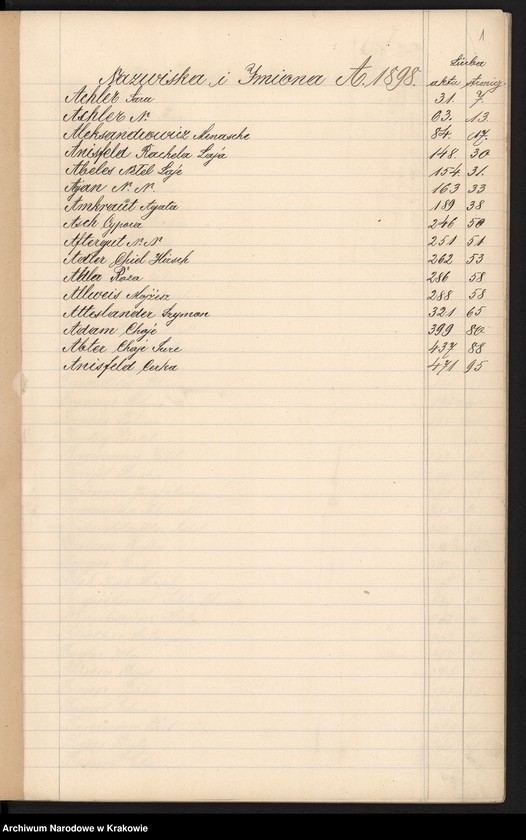 1
Liczba
Nazwiska i Imiona A. 1898. aktu stronicy
Achler Sara 31. 7.
Aschler N. 63. 13
Aleksandrowicz Menasche 84. 17.
Anisfeld Rachela Laja 148. 30
Abeles Laje 154. 31.
Ajan N. N. 163 33
Amkraüt Agata 189 38
Asch Cypora 246 50
Aftergut N. N 251 51
Adler Chiel Hirsch 262 53
Róza 286 58
Allweis Mojżesz 288 58
Atteslander Szymon 321 65
Adam Chaje 399 80
Abter Chaje Sure 437 88
Anisfeld Cerka 471 95
Archiwum Narodowe w Krakowie